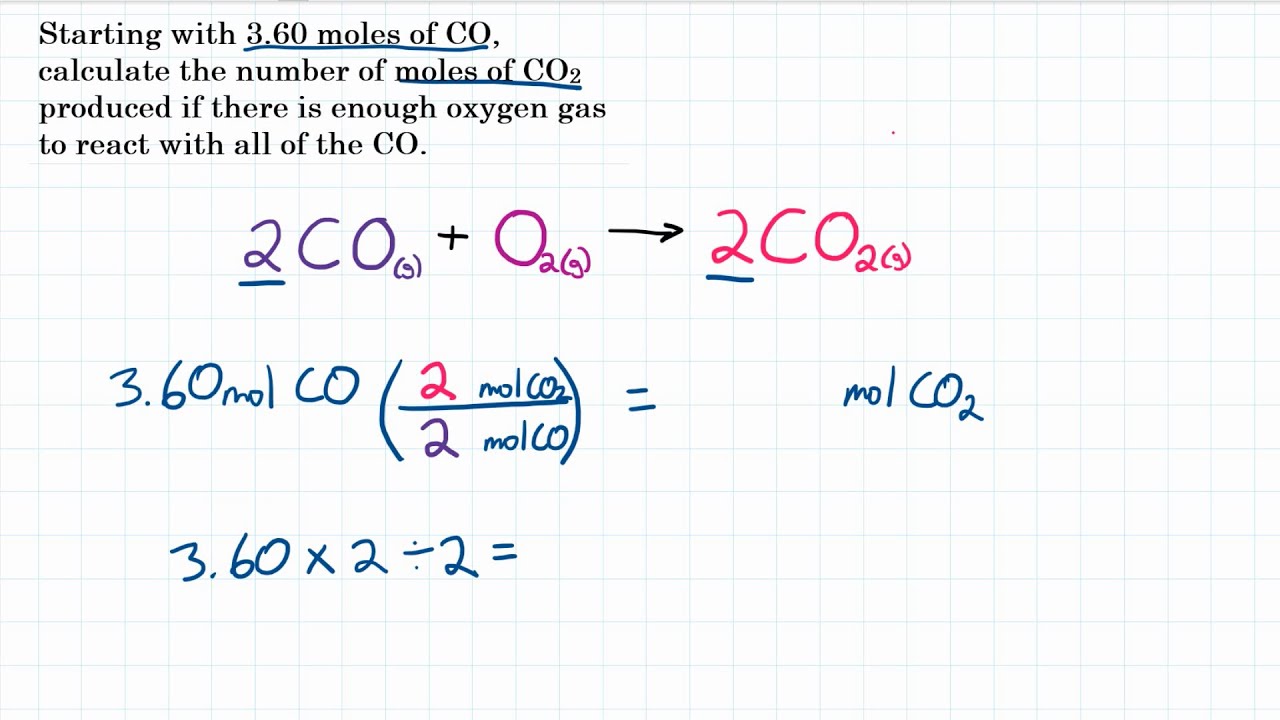 Starting with 3.60 moles of CO,
calculate the number of moles of CO₂
produced if there is enough oxygen gas
to react with all of the CO.
2CO(g) + O₂(g) → 2CO₂(g)
3.60 mol CO (2 mol CO₂ / 2 mol CO) = mol CO₂
3.60 × 2 ÷ 2 =